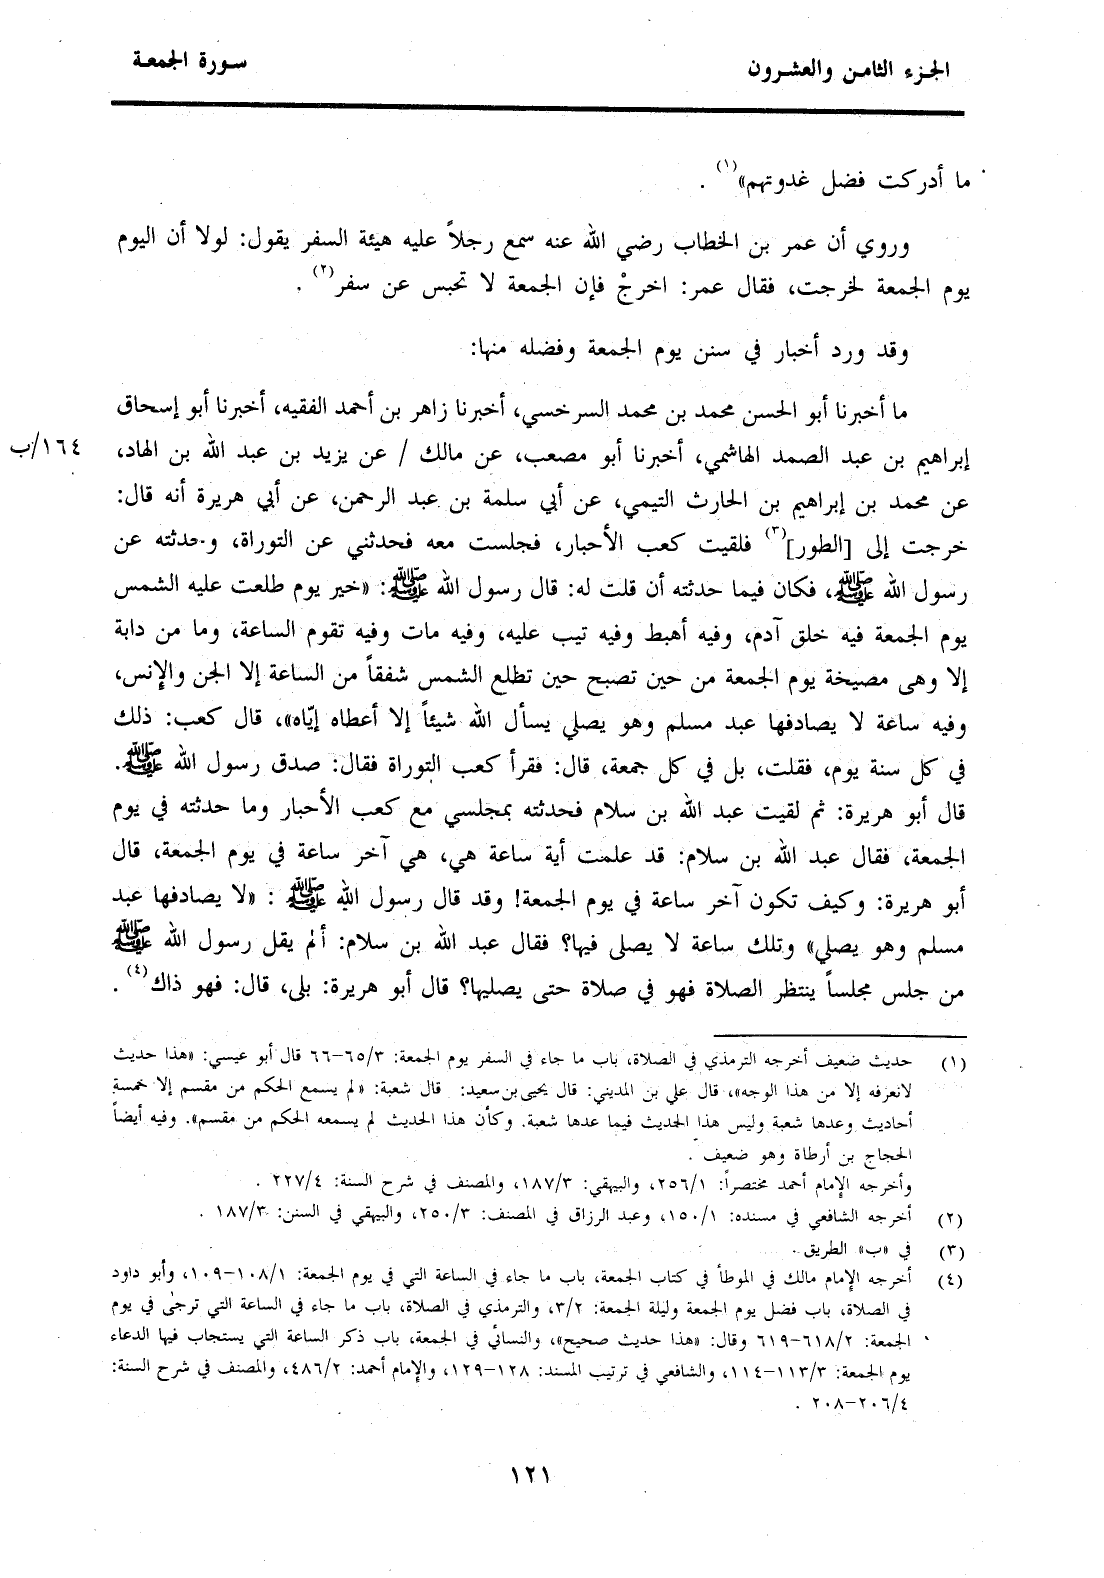 الجزء الثامن والعشرون
سورة الجمعة
ما أدركت فضل غدوتهم»(١) .
وروي أن عمر بن الخطاب رضي الله عنه سمع رجلاً عليه هيئة السفر يقول: لولا أن اليوم
يوم الجمعة لخرجت، فقال عمر: اخرجْ فإن الجمعة لا تحبس عن سفر(٢) .
وقد ورد أخبار في سنن يوم الجمعة وفضله منها:
ما أخبرنا أبو الحسن محمد بن محمد السرخسي، أخبرنا زاهر بن أحمد الفقيه، أخبرنا أبو إسحاق
إبراهيم بن عبد الصمد الهاشمي، أخبرنا أبو مصعب، عن مالك / عن يزيد بن عبد الله بن الهاد،
١٦٤/ب
عن محمد بن إبراهيم بن الحارث التيمي، عن أبي سلمة بن عبد الرحمن، عن أبي هريرة أنه قال:
خرجت إلى [الطور](٣) فلقيت كعب الأحبار، فجلست معه فحدثني عن التوراة، وحدثته عن
رسول الله ﷺ، فكان فيما حدثته أن قلت له: قال رسول الله ﷺ: «خير يوم طلعت عليه الشمس
يوم الجمعة فيه خلق آدم، وفيه أهبط وفيه تيب عليه، وفيه مات وفيه تقوم الساعة، وما من دابة
إلا وهى مصيخة يوم الجمعة من حين تصبح حين تطلع الشمس شفقاً من الساعة إلا الجن والإنس،
وفيه ساعة لا يصادفها عبد مسلم وهو يصلي يسأل الله شيئاً إلا أعطاه إيّاه»، قال كعب: ذلك
في كل سنة يوم، فقلت، بل في كل جمعة، قال: فقرأ كعب التوراة فقال: صدق رسول الله ﷺ.
قال أبو هريرة: ثم لقيت عبد الله بن سلام فحدثته بمجلسي مع كعب الأحبار وما حدثته في يوم
الجمعة، فقال عبد الله بن سلام: قد علمت أية ساعة هي، هي آخر ساعة في يوم الجمعة، قال
أبو هريرة: وكيف تكون آخر ساعة في يوم الجمعة! وقد قال رسول الله ﷺ : «لا يصادفها عبد
مسلم وهو يصلي» وتلك ساعة لا يصلى فيها؟ فقال عبد الله بن سلام: ألم يقل رسول الله ﷺ
من جلس مجلساً ينتظر الصلاة فهو في صلاة حتى يصليها؟ قال أبو هريرة: بلى، قال: فهو ذاك(٤) .
(١) حديث ضعيف أخرجه الترمذي في الصلاة، باب ما جاء في السفر يوم الجمعة: ٣/٦٥-٦٦ قال أبو عيسي: «هذا حديث
لانعرفه إلا من هذا الوجه»، قال علي بن المديني: قال يحيى بن سعيد: قال شعبة: «لم يسمع الحكم من مقسم إلا خمسة
أحاديث وعدها شعبة وليس هذا الحديث فيما عدها شعبة. وكأن هذا الحديث لم يسمعه الحكم من مقسم». وفيه أيضاً
الحجاج بن أرطاة وهو ضعيف .
وأخرجه الإمام أحمد مختصراً: ١/٢٥٦، والبيهقي: ٣/١٨٧، والمصنف في شرح السنة: ٤/٢٢٧ .
(٢) أخرجه الشافعي في مسنده: ١/١٥٠، وعبد الرزاق في المصنف: ٣/٢٥٠، والبيهقي في السنن: ٣/١٨٧ .
(٣) في «ب» الطريق .
(٤) أخرجه الإمام مالك في الموطأ في كتاب الجمعة، باب ما جاء في الساعة التي في يوم الجمعة: ١/١٠٨-١٠٩، وأبو داود
في الصلاة، باب فضل يوم الجمعة وليلة الجمعة: ٣/٢، والترمذي في الصلاة، باب ما جاء في الساعة التي ترجىٰ في يوم
الجمعة: ٢/٦١٨-٦١٩ وقال: «هذا حديث صحيح»، والنسائي في الجمعة، باب ذكر الساعة التي يستجاب فيها الدعاء
يوم الجمعة: ٣/١١٣-١١٤، والشافعي في ترتيب المسند: ١٢٨-١٢٩، والإمام أحمد: ٢/٤٨٦، والمصنف في شرح السنة:
٤/٢٠٦-٢٠٨ .
١٢١